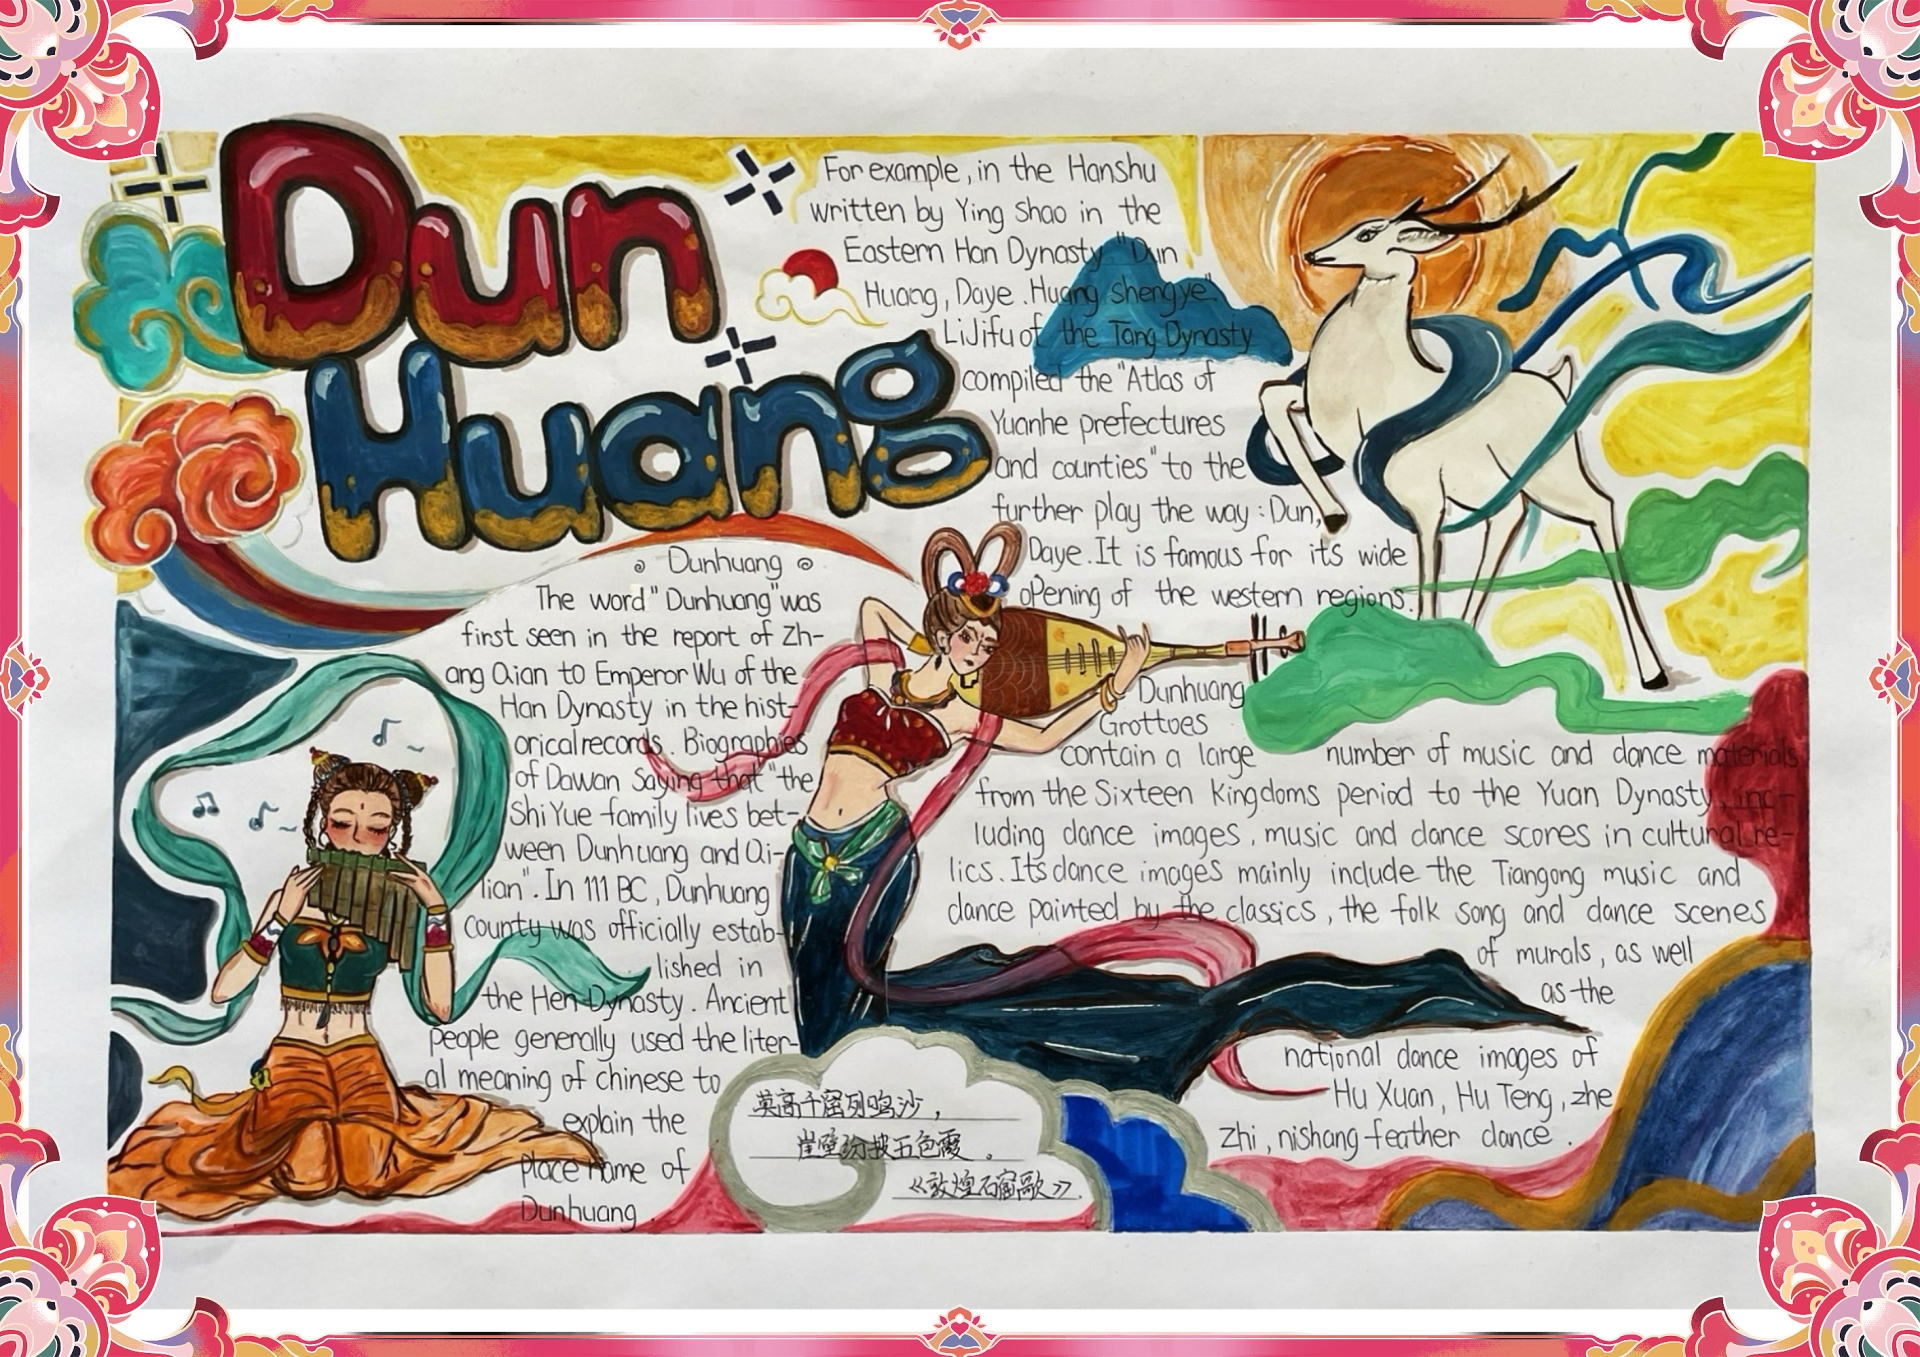 Dun
Huang
Dunhuang
The word "Dunhuang" was
first seen in the report of Zh-
ang Qian to Emperor Wu of the
Han Dynasty in the hist-
orical records. Biographies
of Dawan Saying that "the
Shi Yue family lives bet-
ween Dunhuang and Qi-
lian". In 111 BC, Dunhuang
County was officially estab-
lished in
the Hen Dynasty. Ancient
People generally used the liter-
al meaning of chinese to
explain the
place name of
Dunhuang.
For example, in the Hanshu
written by Ying Shao in the
Eastern Han Dynasty "Dun
Huang, Daye. Huang shengye".
LiJifu of the Tang Dynasty
compiled the "Atlas of
Yuanhe prefectures
and counties" to the
further play the way: Dun,
Daye. It is famous for its wide
oPening of the western regions.
Dunhuang
Grottoes
contain a large number of music and dance materials
from the Sixteen Kingdoms period to the Yuan Dynasty, inc-
luding dance images, music and dance scores in cultural re-
lics. Its dance images mainly include the Tiangong music and
dance painted by the classics, the folk song and dance scenes
of murals, as well
as the
national dance images of
Hu Xuan, Hu Teng, zhe
Zhi, nishang feather dance.
莫高千窟列鸣沙，
崖壁纷披五色霞。
《敦煌石窟歌》